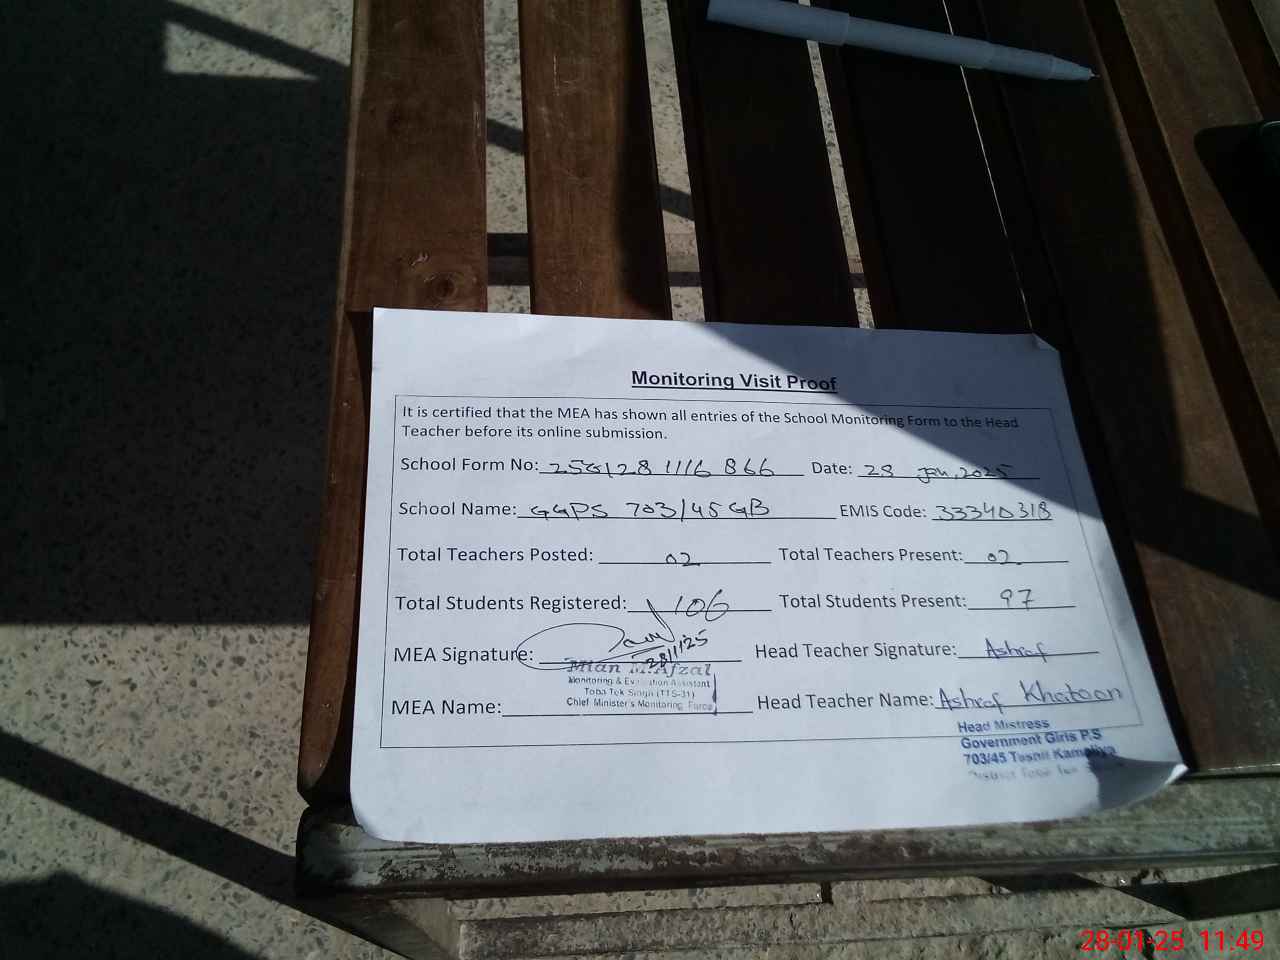 Monitoring Visit Proof
It is certified that the MEA has shown all entries of the School Monitoring Form to the Head
Teacher before its online submission.
School Form No: 25G128 1116 866 Date: 28 Jan, 2025
School Name: GGPS 703/45 GB EMIS Code: 33340318
Total Teachers Posted: 02 Total Teachers Present: 02
Total Students Registered: 106 Total Students Present: 97
MEA Signature: 28/1/25 Head Teacher Signature: Ashraf
Mian M. Afzal
Monitoring & Evaluation Assistant
Toba Tek Singh (TTS-31)
Chief Minister's Monitoring Force
MEA Name: Head Teacher Name: Ashraf Khatoon
Head Mistress
Government Girls P.S
703/45 Tehsil Kamaliya
28-01-25 11:49